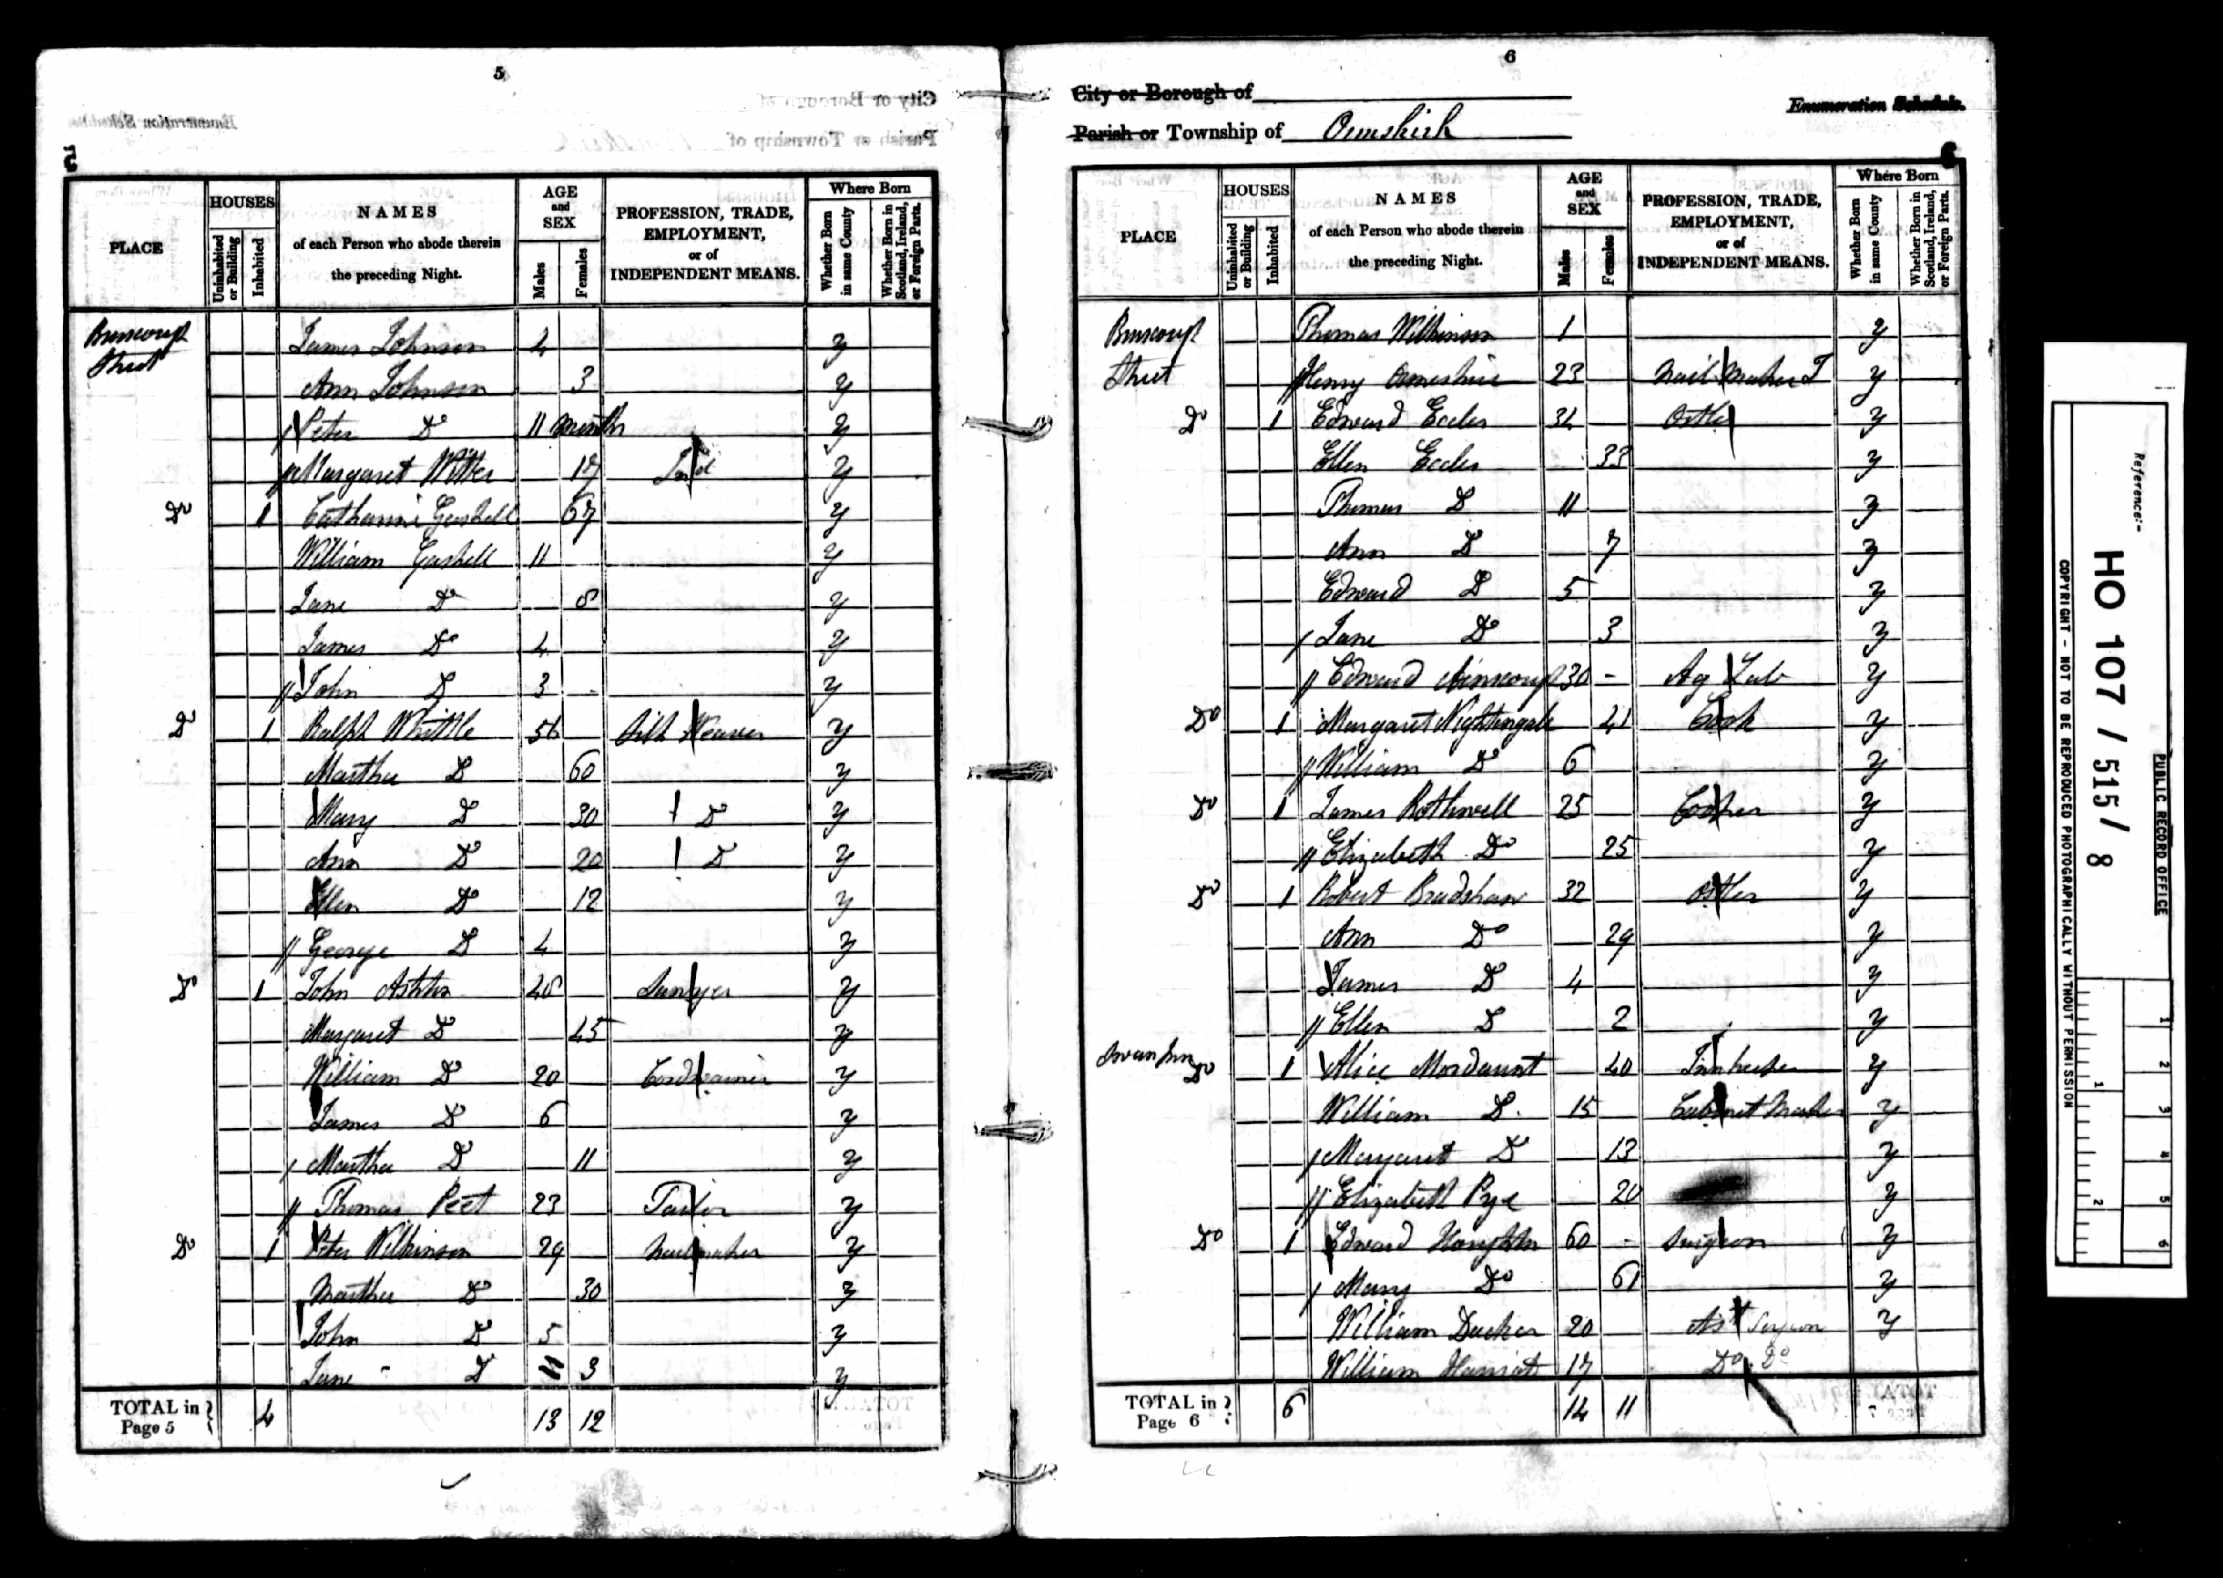 5
5
HOUSES
AGE and SEX
Where Born
PLACE
Uninhabited or Building
Inhabited
NAMES of each Person who abode therein the preceding Night.
Males
Females
PROFESSION, TRADE, EMPLOYMENT, or of INDEPENDENT MEANS.
Whether Born in same County
Whether Born in Scotland, Ireland, or Foreign Parts.
Burscough Street James Johnson 4 y
Ann Johnson 3 y
Peter Do 11 Month y
Margaret 17 y
Do 1 Catharine Gaskell 67 y
William Gaskell 11 y
Jane Do 8 y
James Do 4 y
John Do 3 y
Do 1 Ralph Whittle 56 Silk Weaver y
Martha Do 60 y
Mary Do 30 Do y
Ann Do 20 Do y
Ellen Do 12 y
George Do 4 y
Do 1 John Sawyer y
Margaret Do 45 y
William Do 20 Cordwainer y
James Do 6 y
Martha Do 11 y
Thomas Peet 23 Tailor y
Do 1 Peter Wilkinson 29 Nailmaker y
Martha Do 30 y
John Do 5 y
Jane Do 3 y
TOTAL in Page 5 4 13 12
6
City or Borough of
Enumeration Schedule.
Parish or Township of Ormskirk
6
HOUSES
AGE and SEX
Where Born
PLACE
Uninhabited or Building
Inhabited
NAMES of each Person who abode therein the preceding Night.
Males
Females
PROFESSION, TRADE, EMPLOYMENT, or of INDEPENDENT MEANS.
Whether Born in same County
Whether Born in Scotland, Ireland, or Foreign Parts.
Burscough Thomas Wilkinson 1 y
Street Henry 23 Nail Maker J y
Do 1 Edward Eccles Ostler y
Ellen Eccles 33 y
Thomas Do 11 y
Ann Do 7 y
Edward Do 5 y
Jane Do 3 y
Edward Ainscough 30 Ag Lab y
Do 1 Margaret Nightingale 41 Cook y
William Do 6 y
Do 1 James Rothwell 25 Cooper y
Elizabeth Do 25 y
Do 1 Robert Bradshaw 32 Ostler y
Ann Do 29 y
James Do 4 y
Ellen Do 2 y
Swan Inn Do 1 Alice Mordaunt 40 Innkeeper y
William Do 15 Cabinet Maker y
Margaret Do 13 y
Elizabeth Pye 20 y
Do 1 Edward Houghton 60 Surgeon y
Mary Do 61 y
William Ducker 20 Ast Surgeon y
William 17 Do Do
TOTAL in Page 6 6 14 11
Reference:-
HO 107 / 515 / 8
PUBLIC RECORD OFFICE
COPYRIGHT - NOT TO BE REPRODUCED PHOTOGRAPHICALLY WITHOUT PERMISSION
1
2
1 2 3 4 5 6